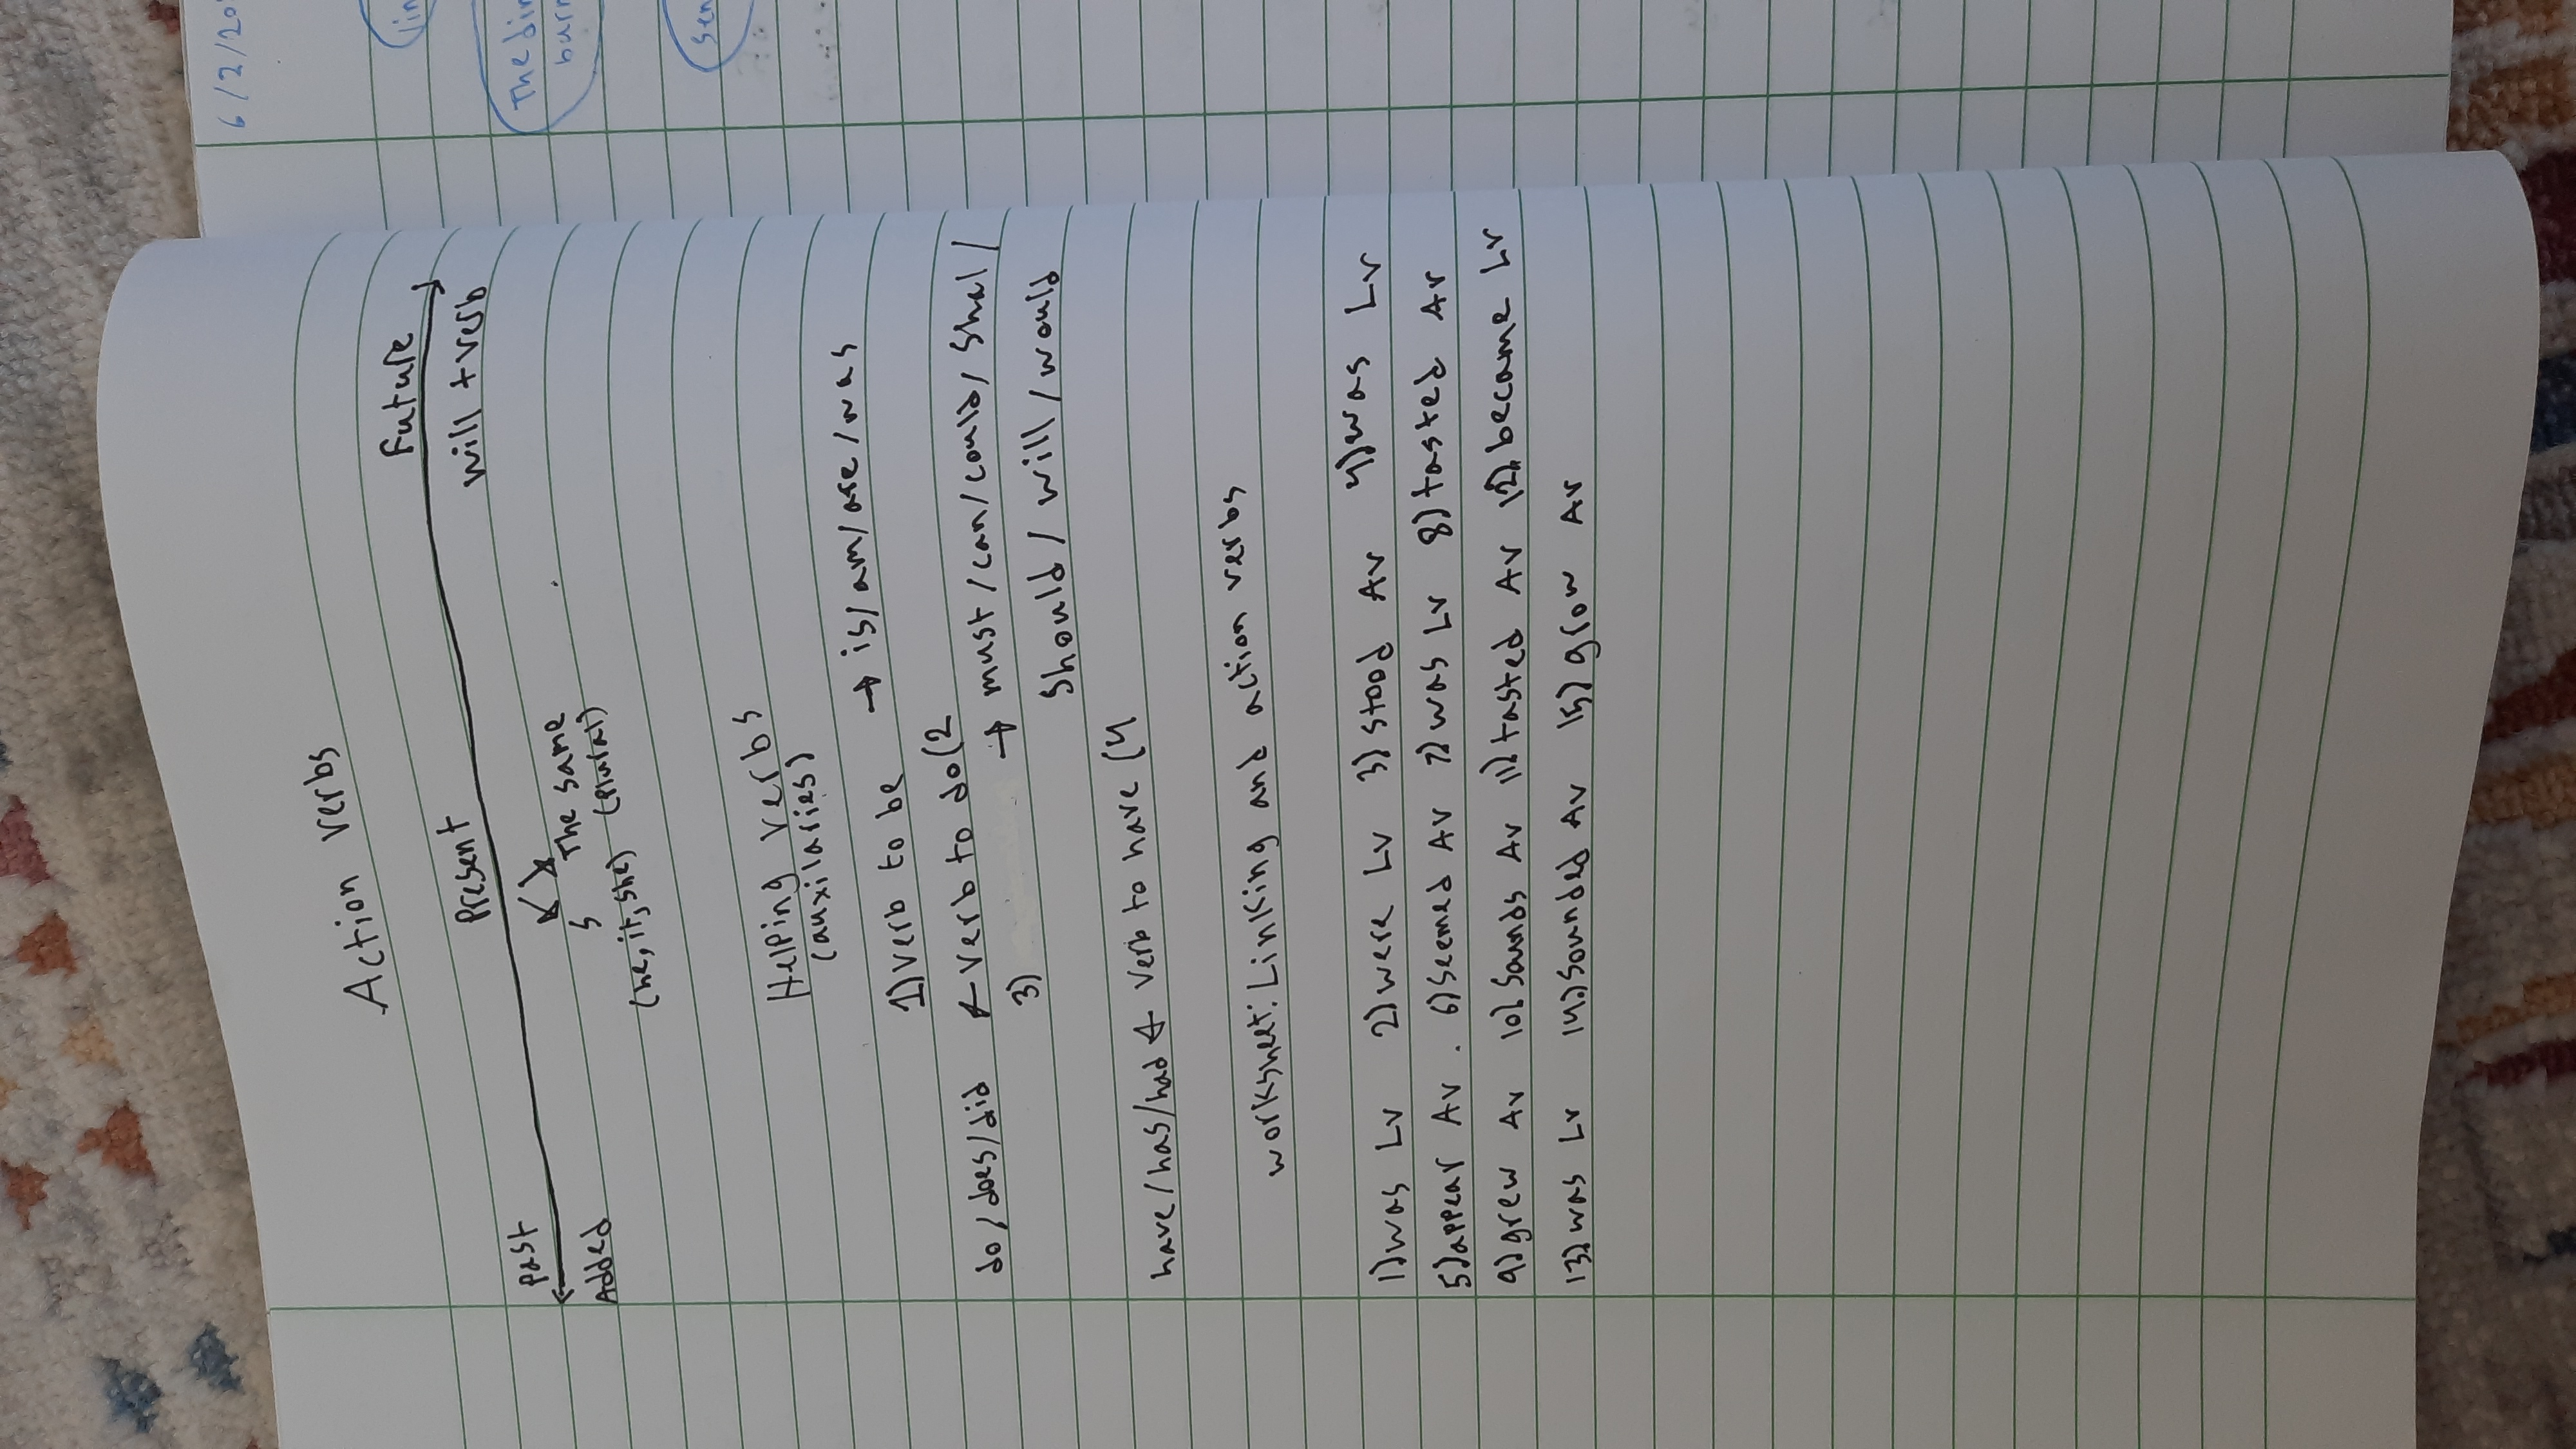 Action verbs
Future
Present
will + verb
past
Added
s The same
(he, it, she) (Plural)
Helping verbs
(auxilaries)
1) verb to be → is/am/are/was
do/does/did ← verb to do (2
3) → must/can/could/Shal/
Should/will/would
have/has/had ← verb to have (4
worksheet: Linking and action verbs
1) was Lv 2) were Lv 3) stood Av 4) was Lv
5) appear Av . 6) Seemed Av 7) was Lv 8) tasted Av
9) grew Av 10) Sounds Av 11) tasted Av 12) became Lv
13) was Lv 14) Sounded Av 15) grow Av
6/2/20
The